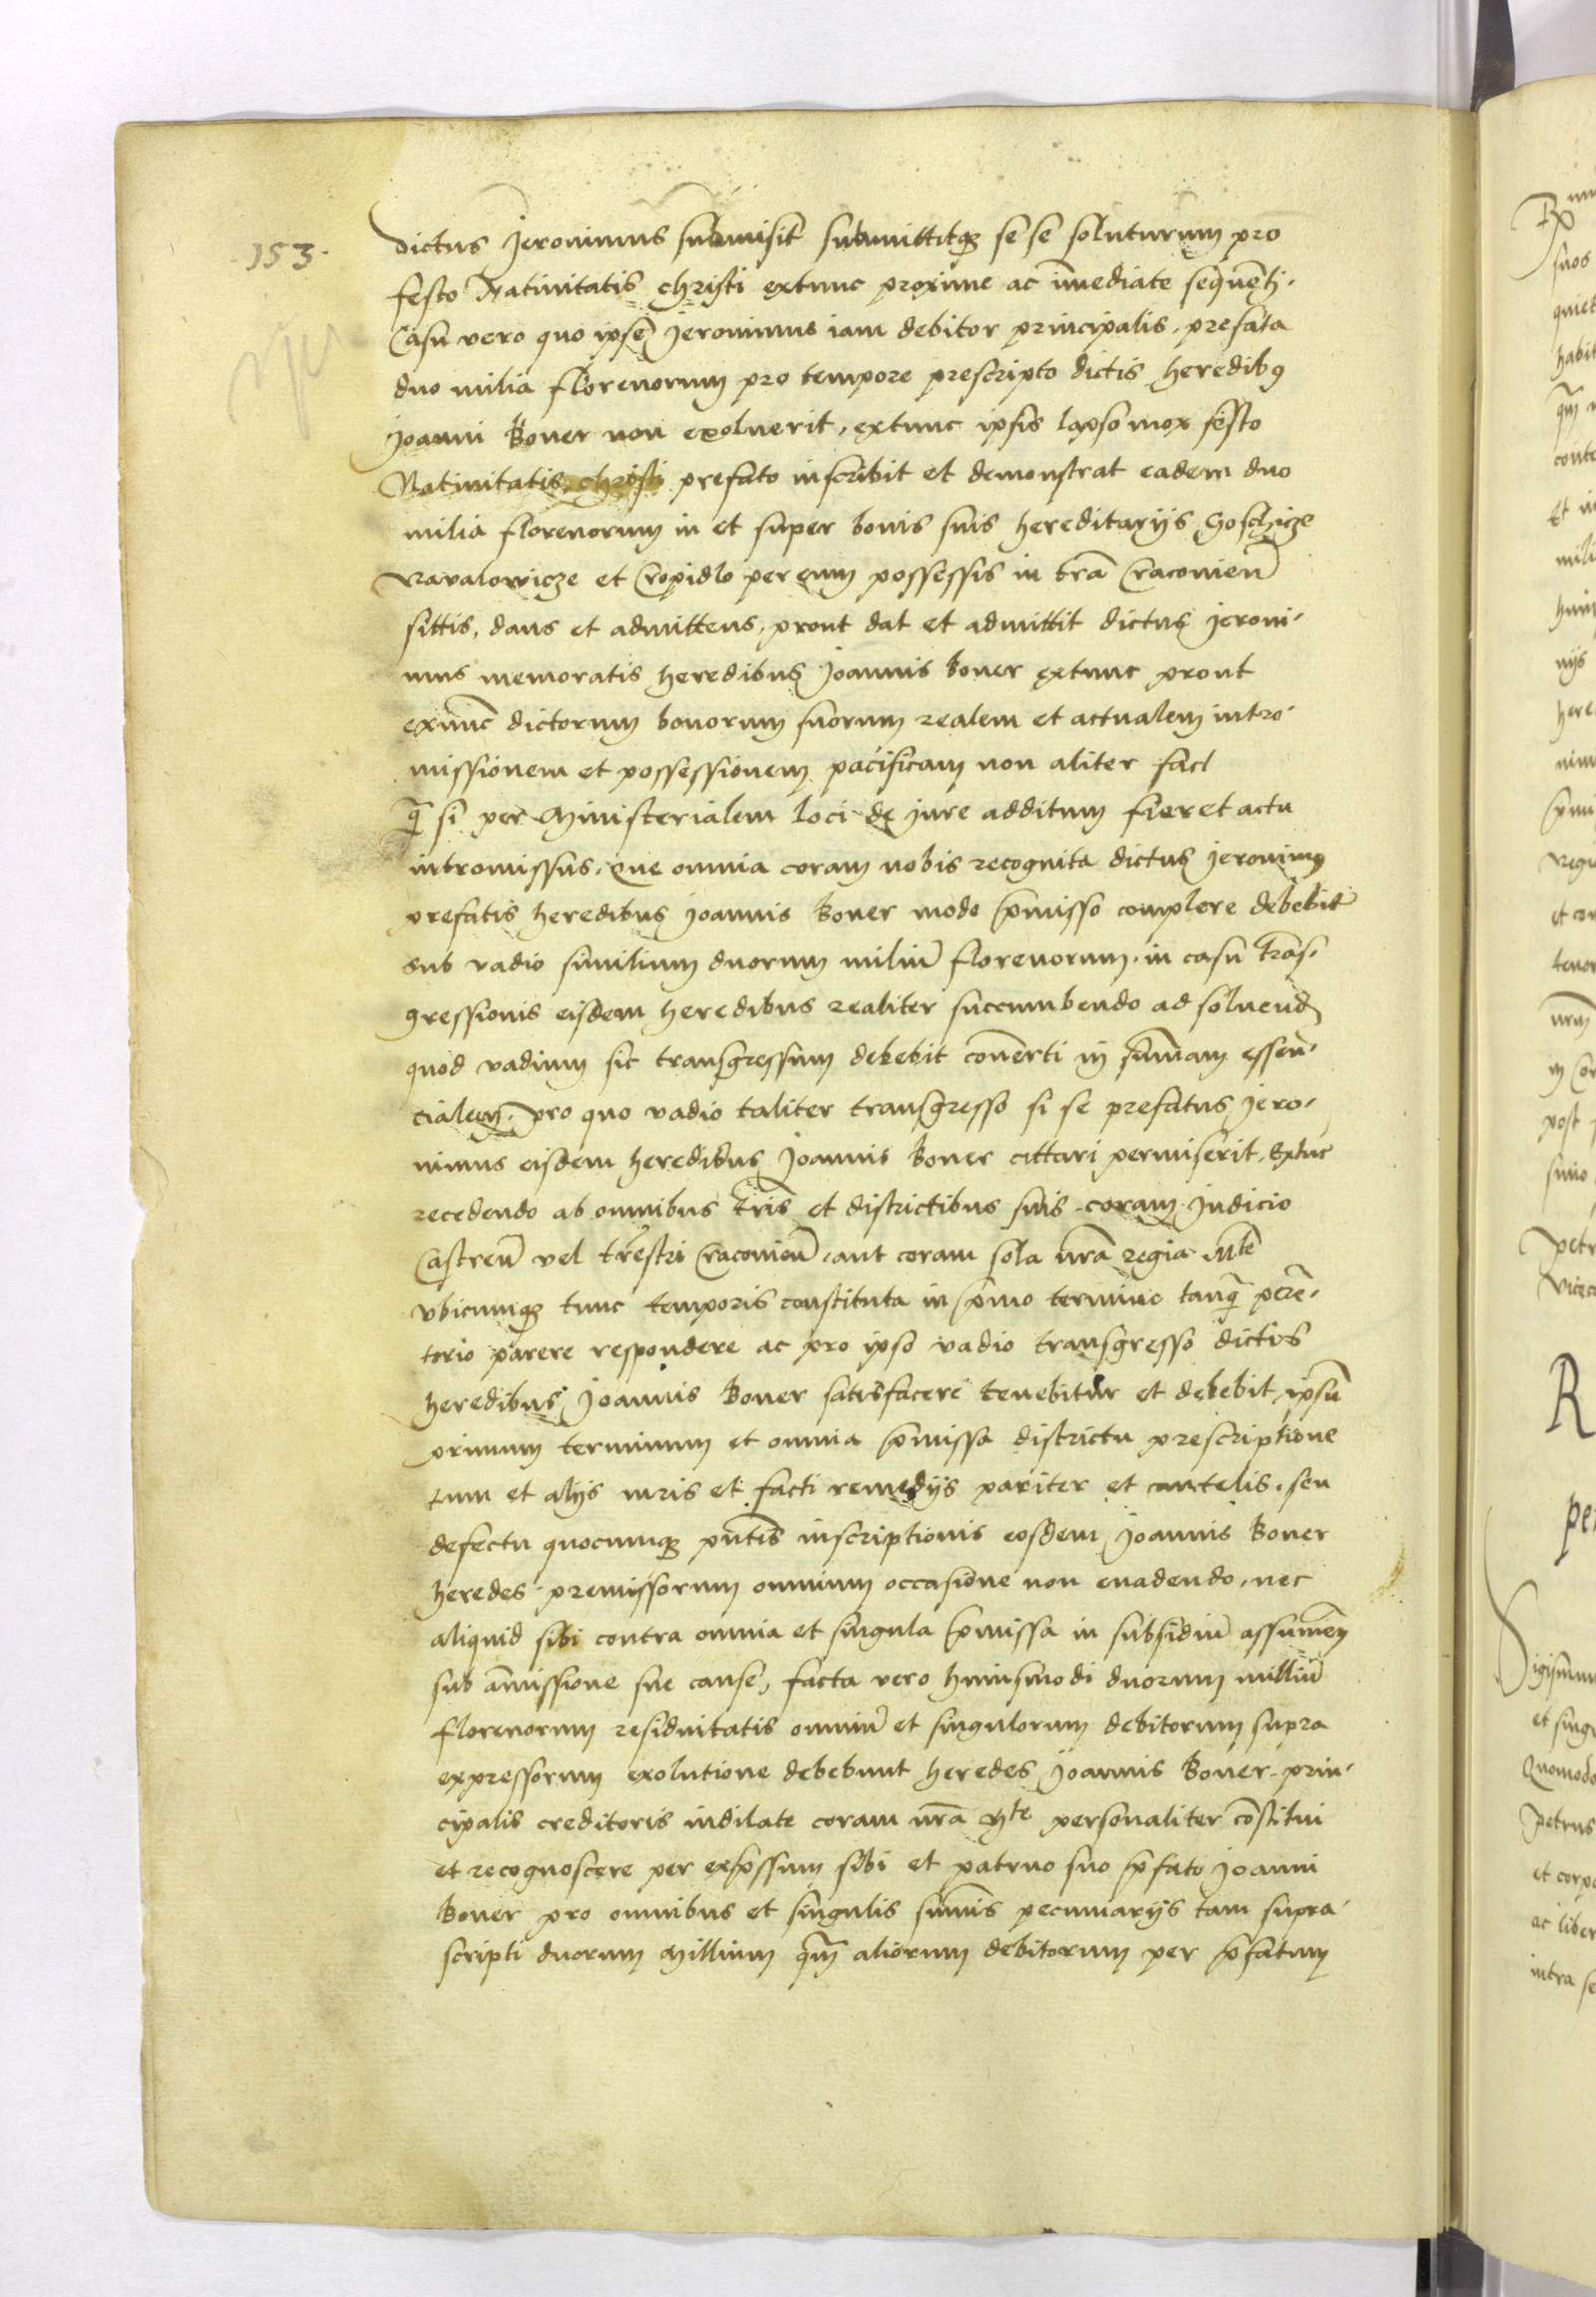 153.
dictus Jeronimus submisit submittitq3 se se soluturum pro
festo Natiuitatis christi extunc proxime ac im̄ediate sequen̄.
Casu vero quo ipse Jeronimus iam debitor principalis, prefata
duo milia florenorum pro tempore prescripto dictis heredib9
Joanni Boner non exoluerit, extunc ipsis lapso mox festo
Natiuitatis christi prefato inscribit et demonstrat eadem duo
milia florenorum in et super bonis suis hereditarijs
et Cropidlo per eum possessis in tr̄a Cracouien̄
sittis, dans et admittens, prout dat et admittit dictus Jeroni-
mus memoratis heredibus Joannis Boner extunc prout
exnūc dictorum bonorum suorum realem et actualem intro-
missionem et possessionem pacificam non aliter fact
q̄ si per Ministerialem loci de jure additum fieret actu
intromissus, Que omnia coram nobis recognita dictus Jeronim9
prefatis heredibus Joannis Boner modo p̄misso complere debebit
sub vadio similium duorum miliū florenorum, in casu trās-
gressionis eisdem heredibus realiter succumbendo ad soluend
quod vadium sic transgressum debebit conuerti in sum̄am essen-
cialem, pro quo vadio taliter transgresso si se prefatus Jero-
nimus eisdem heredibus Joannis Boner cittari permiserit, Extūc
recedendo ab omnibus tr̄is et districtibus suis coram Judicio
Castren̄ vel tr̄estri Cracouien̄, aut coram sola nr̄a regia Mte
vbicumq3 tunc temporis constituta in p̄mo termino tanq̄ perē-
torio parere respondere ac pro ipso vadio transgresso dictis
heredibus Joannis Boner satisfacere tenebitur et debebit, ipsū
primum terminum et omnia p̄missa districtu prescriptione
tum et alijs iuris et facti remedijs pariter et cautelis, seu
defectu quocumq3 pn̄tis inscriptionis eosdem Joannis Boner
heredes premissorum omnium occasione non euadendo, nec
aliquid sibi contra omnia et singula p̄missa in subsidiū assumen̄
sub am̄issione sue cause, facta vero huiusmodi duorum milliū
florenorum residuitatis omniū et singulorum debitorum supra
expressorum exolutione debebunt heredes Joannis Boner prin-
cipalis creditoris indilate coram nr̄a Mte personaliter cōstitui
et recognoscere per exp̄ssum sibi et patruo suo p̄fato Joanni
Boner pro omnibus et singulis sum̄is pecuniarijs tam supra-
scripti duorum Millium q̄m aliorum debitorum per p̄fatum